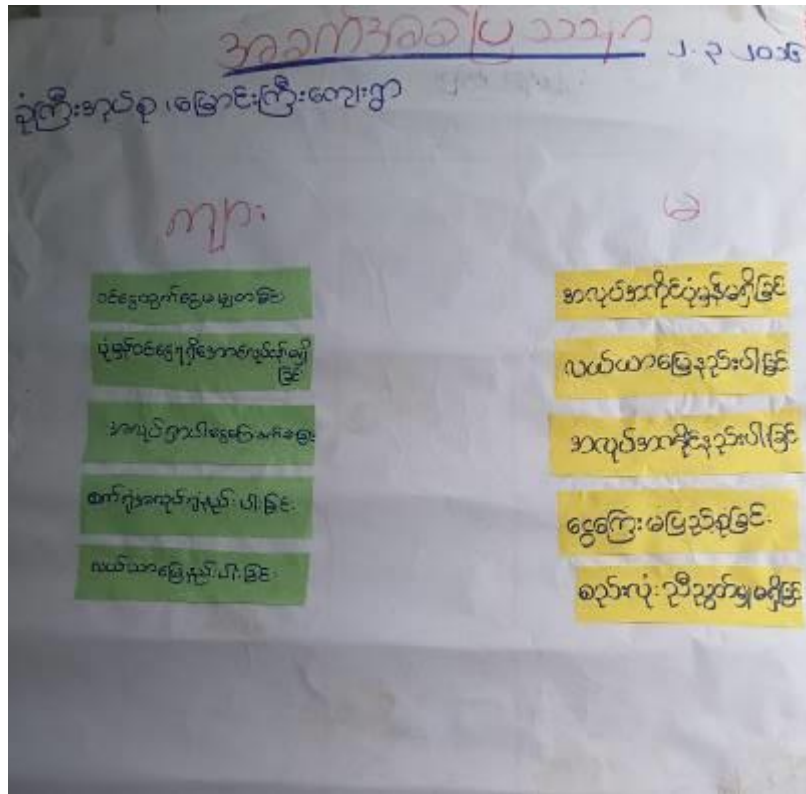 အခက်အခဲပြဿနာ
၂.၃.၂၀၁၆
ခုံကြီးအုပ်စု၊ မြောင်းကြီးကျေးရွာ
ကျား
မ
ဝင်ငွေထွက်ငွေမမျှတခြင်း
ပုံမှန်ဝင်ငွေရရှိအောင်လုပ်
ခြင်း
အလုပ်
စက်ရုံအလုပ်ရုံနည်းပါးခြင်း
လယ်ယာမြေနည်းပါးခြင်း
အလုပ်အကိုင်ပုံမှန်မရှိခြင်း
လယ်ယာမြေနည်းပါးခြင်း
အလုပ်အကိုင်နည်းပါးခြင်း
ငွေကြေးမပြည့်စုံခြင်း
စည်းလုံးညီညွတ်မှုမရှိခြင်း